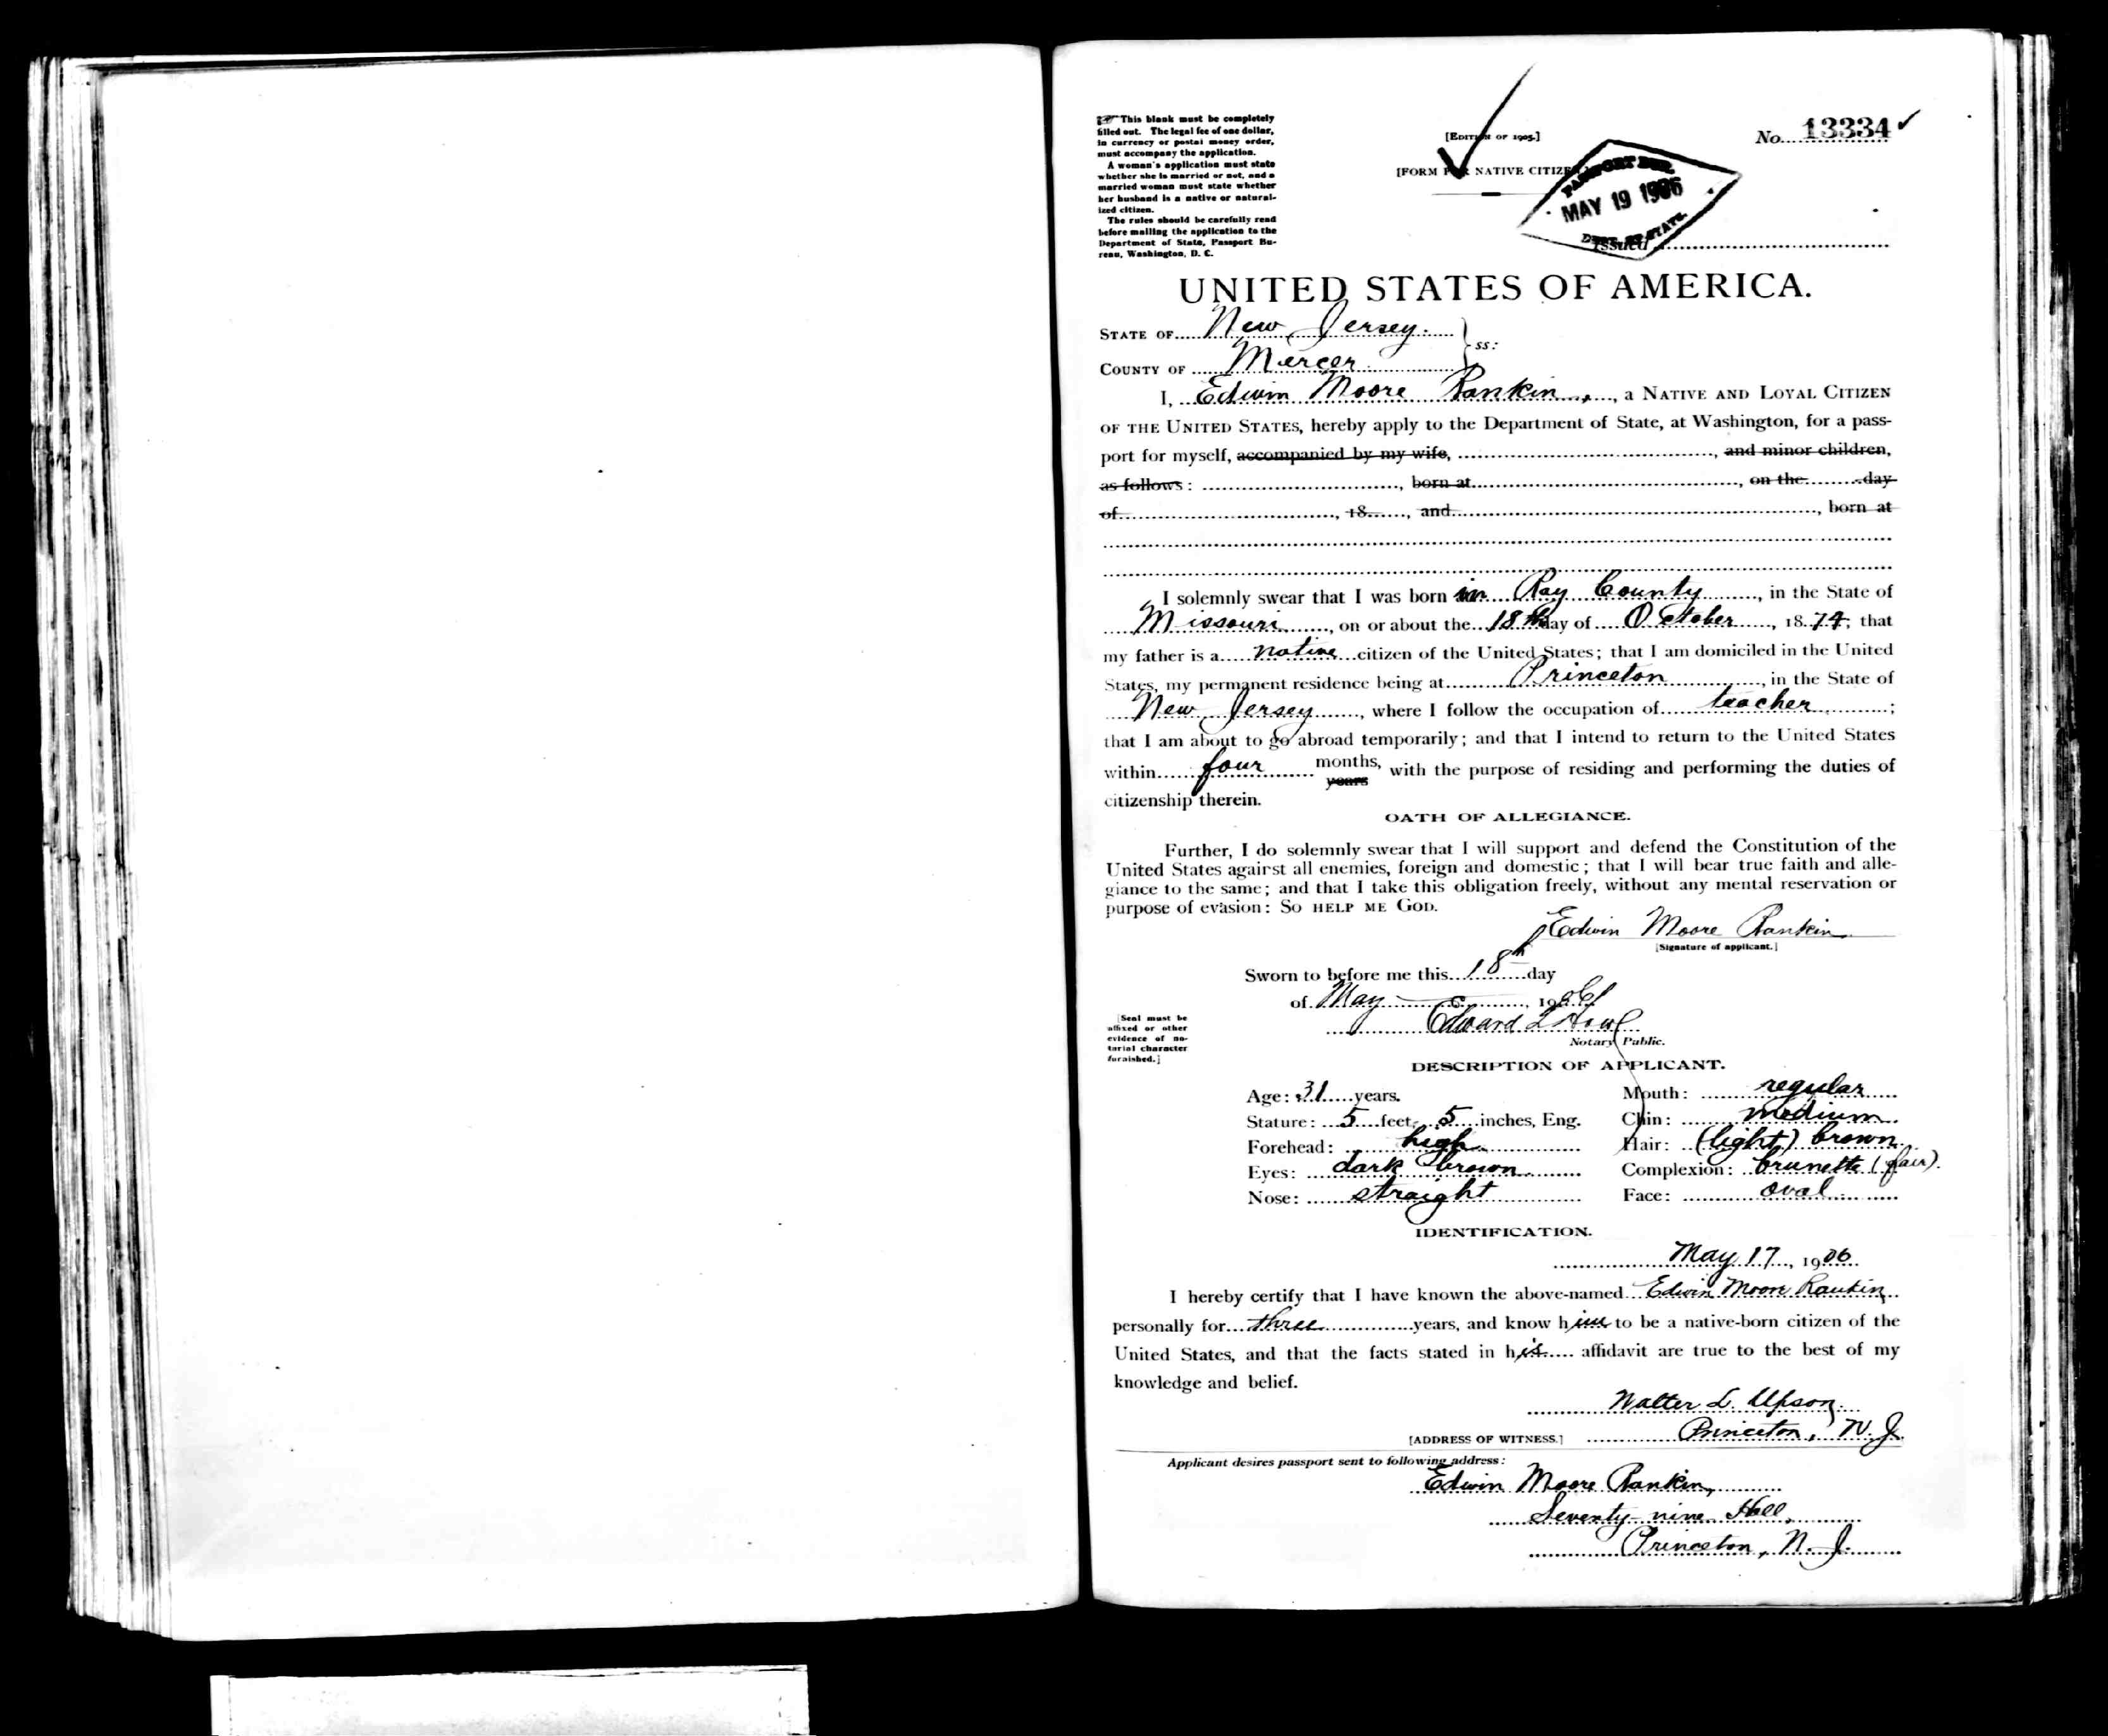 ☞ This blank must be completely
filled out. The legal fee of one dollar,
in currency or postal money order,
must accompany the application.
A woman's application must state
whether she is married or not, and a
married woman must state whether
her husband is a native or natural-
ized citizen.
The rules should be carefully read
before mailing the application to the
Department of State, Passport Bu-
reau, Washington, D. C.
[EDITION OF 1905.]
No. 13334
[FORM FOR NATIVE CITIZEN.]
PASSPORT BUR.
MAY 19 1906
DEPT. OF STATE.
Issued
UNITED STATES OF AMERICA.
STATE OF New Jersey.
COUNTY OF Mercer
ss:
I, Edwin Moore Rankin, a NATIVE AND LOYAL CITIZEN
OF THE UNITED STATES, hereby apply to the Department of State, at Washington, for a pass-
port for myself, accompanied by my wife, , and minor children,
as follows: , born at , on the day
of , 18 , and , born at
I solemnly swear that I was born in Ray County, in the State of
Missouri, on or about the 18th day of October, 1874; that
my father is a native citizen of the United States; that I am domiciled in the United
States, my permanent residence being at Princeton, in the State of
New Jersey, where I follow the occupation of teacher;
that I am about to go abroad temporarily; and that I intend to return to the United States
within four months, years with the purpose of residing and performing the duties of
citizenship therein.
OATH OF ALLEGIANCE.
Further, I do solemnly swear that I will support and defend the Constitution of the
United States against all enemies, foreign and domestic; that I will bear true faith and alle-
giance to the same; and that I take this obligation freely, without any mental reservation or
purpose of evasion: SO HELP ME GOD.
Edwin Moore Rankin
[Signature of applicant.]
Sworn to before me this 18th day
of May, 1906
Edward L Howe
Notary Public.
[Seal must be
affixed or other
evidence of no-
tarial character
furnished.]
DESCRIPTION OF APPLICANT.
Age: 31 years. Mouth: regular
Stature: 5 feet, 5 inches, Eng. Chin: medium
Forehead: high Hair: (light) brown
Eyes: dark brown Complexion: brunette (fair).
Nose: straight Face: oval
IDENTIFICATION.
May 17, 1906
I hereby certify that I have known the above-named Edwin Moore Rankin
personally for three years, and know him to be a native-born citizen of the
United States, and that the facts stated in his affidavit are true to the best of my
knowledge and belief.
Walter L. Upson.
[ADDRESS OF WITNESS.] Princeton, N. J.
Applicant desires passport sent to following address:
Edwin Moore Rankin,
Seventy-nine Hall,
Princeton, N. J.